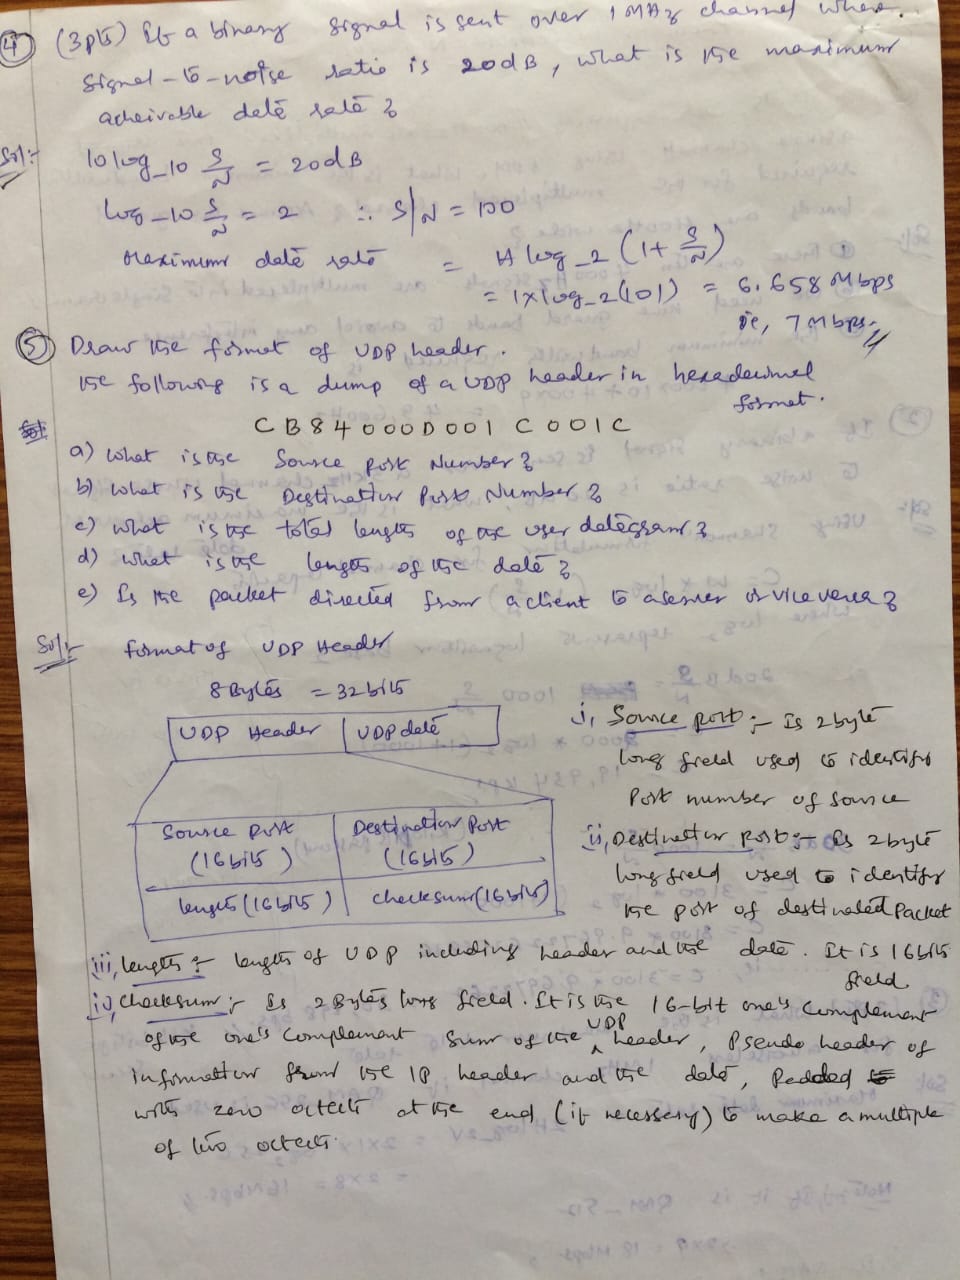 ④ (3pts) If a binary signal is sent over 1 MHz channel whose
signal-to-noise ratio is 20dB, what is the maximum
acheivable data rate ?
Sol:- 10log_10 S/N = 20dB
log_10 S/N = 2 ∴ S/N = 100
Maximum data rate = H log_2 (1 + S/N)
= 1xlog_2(101) = 6.658 Mbps
ie, 7 Mbps.
⑤ Draw the format of UDP header.
the following is a dump of a UDP header in hexadecimal
format.
CB84000D001C001C
a) What is the Source port Number ?
b) What is the Destination Port Number ?
c) What is the total length of the user datagram ?
d) What is the length of the data ?
e) Is the packet directed from a client to a server or vice versa ?
Sol:- format of UDP Header
8 Bytes = 32 bits
UDP Header UDP data
Source port Destination Port
(16bits) (16bits)
length (16bits) checksum (16bits)
i, Source port :- Is 2 byte
long field used to identify
Port number of source
ii, Destination port :- Is 2 byte
long field used to identify
the port of destinated Packet
iii, length :- length of UDP including header and the data. It is 16bits
field.
iv, checksum :- Is 2 Bytes long field. It is the 16-bit one's complement
of the one's complement sum of the UDP header, Pseudo header of
information from the IP header and the data, Padded
with zero octects at the end (if necessary) to make a multiple
of two octects.